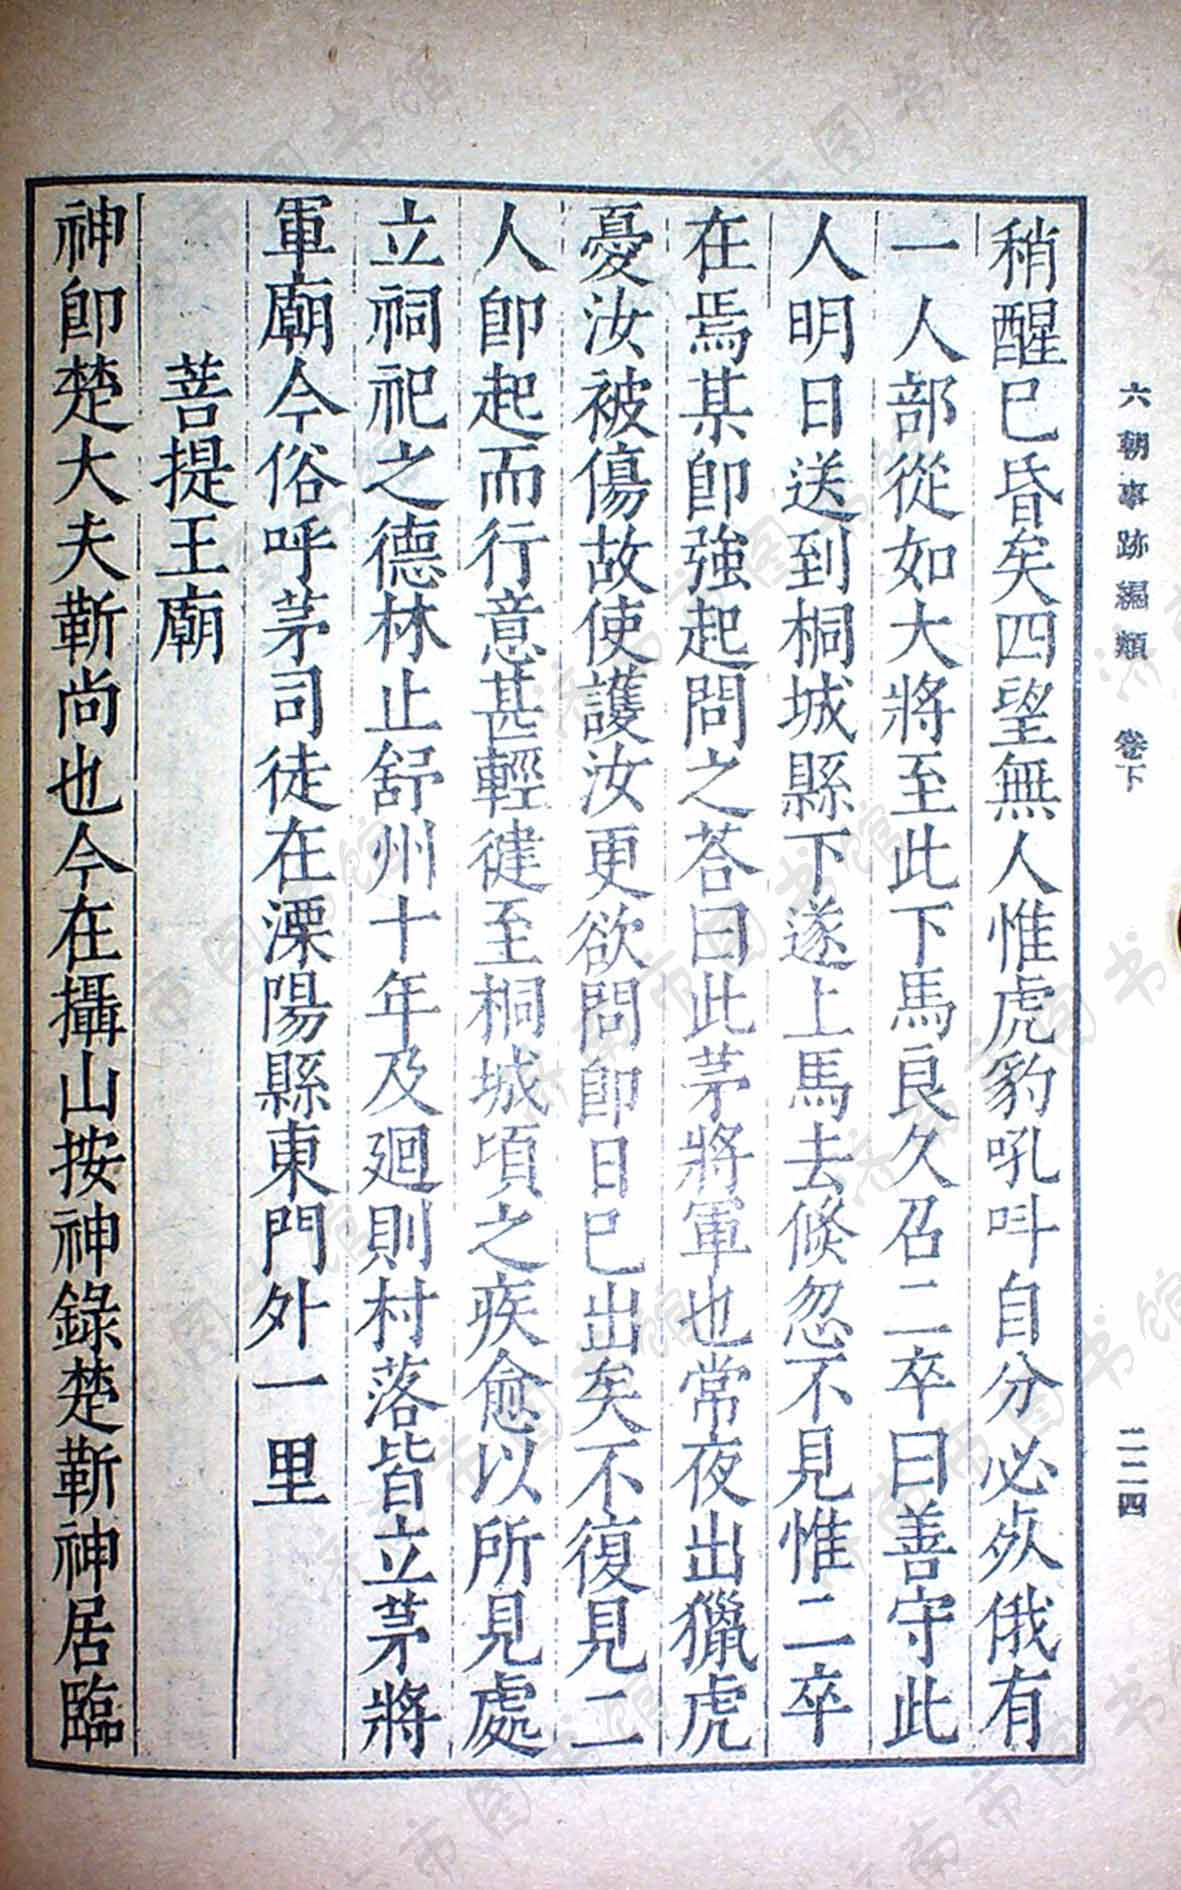 六朝事跡編類 卷下
二二四
稍醒已昏矣四望無人惟虎豹吼呌自分必死俄有
一人部從如大將至此下馬良久召二卒曰善守此
人明日送到桐城縣下遂上馬去倐忽不見惟二卒
在焉某卽強起問之荅曰此茅將軍也常夜出獵虎
憂汝被傷故使護汝更欲問卽日已出矣不復見二
人卽起而行意甚輕健至桐城頃之疾愈以所見處
立祠祀之德林止舒州十年及廻則村落皆立茅將
軍廟今俗呼茅司徒在溧陽縣東門外一里
菩提王廟
神卽楚大夫靳尚也今在攝山按神錄楚靳神居臨